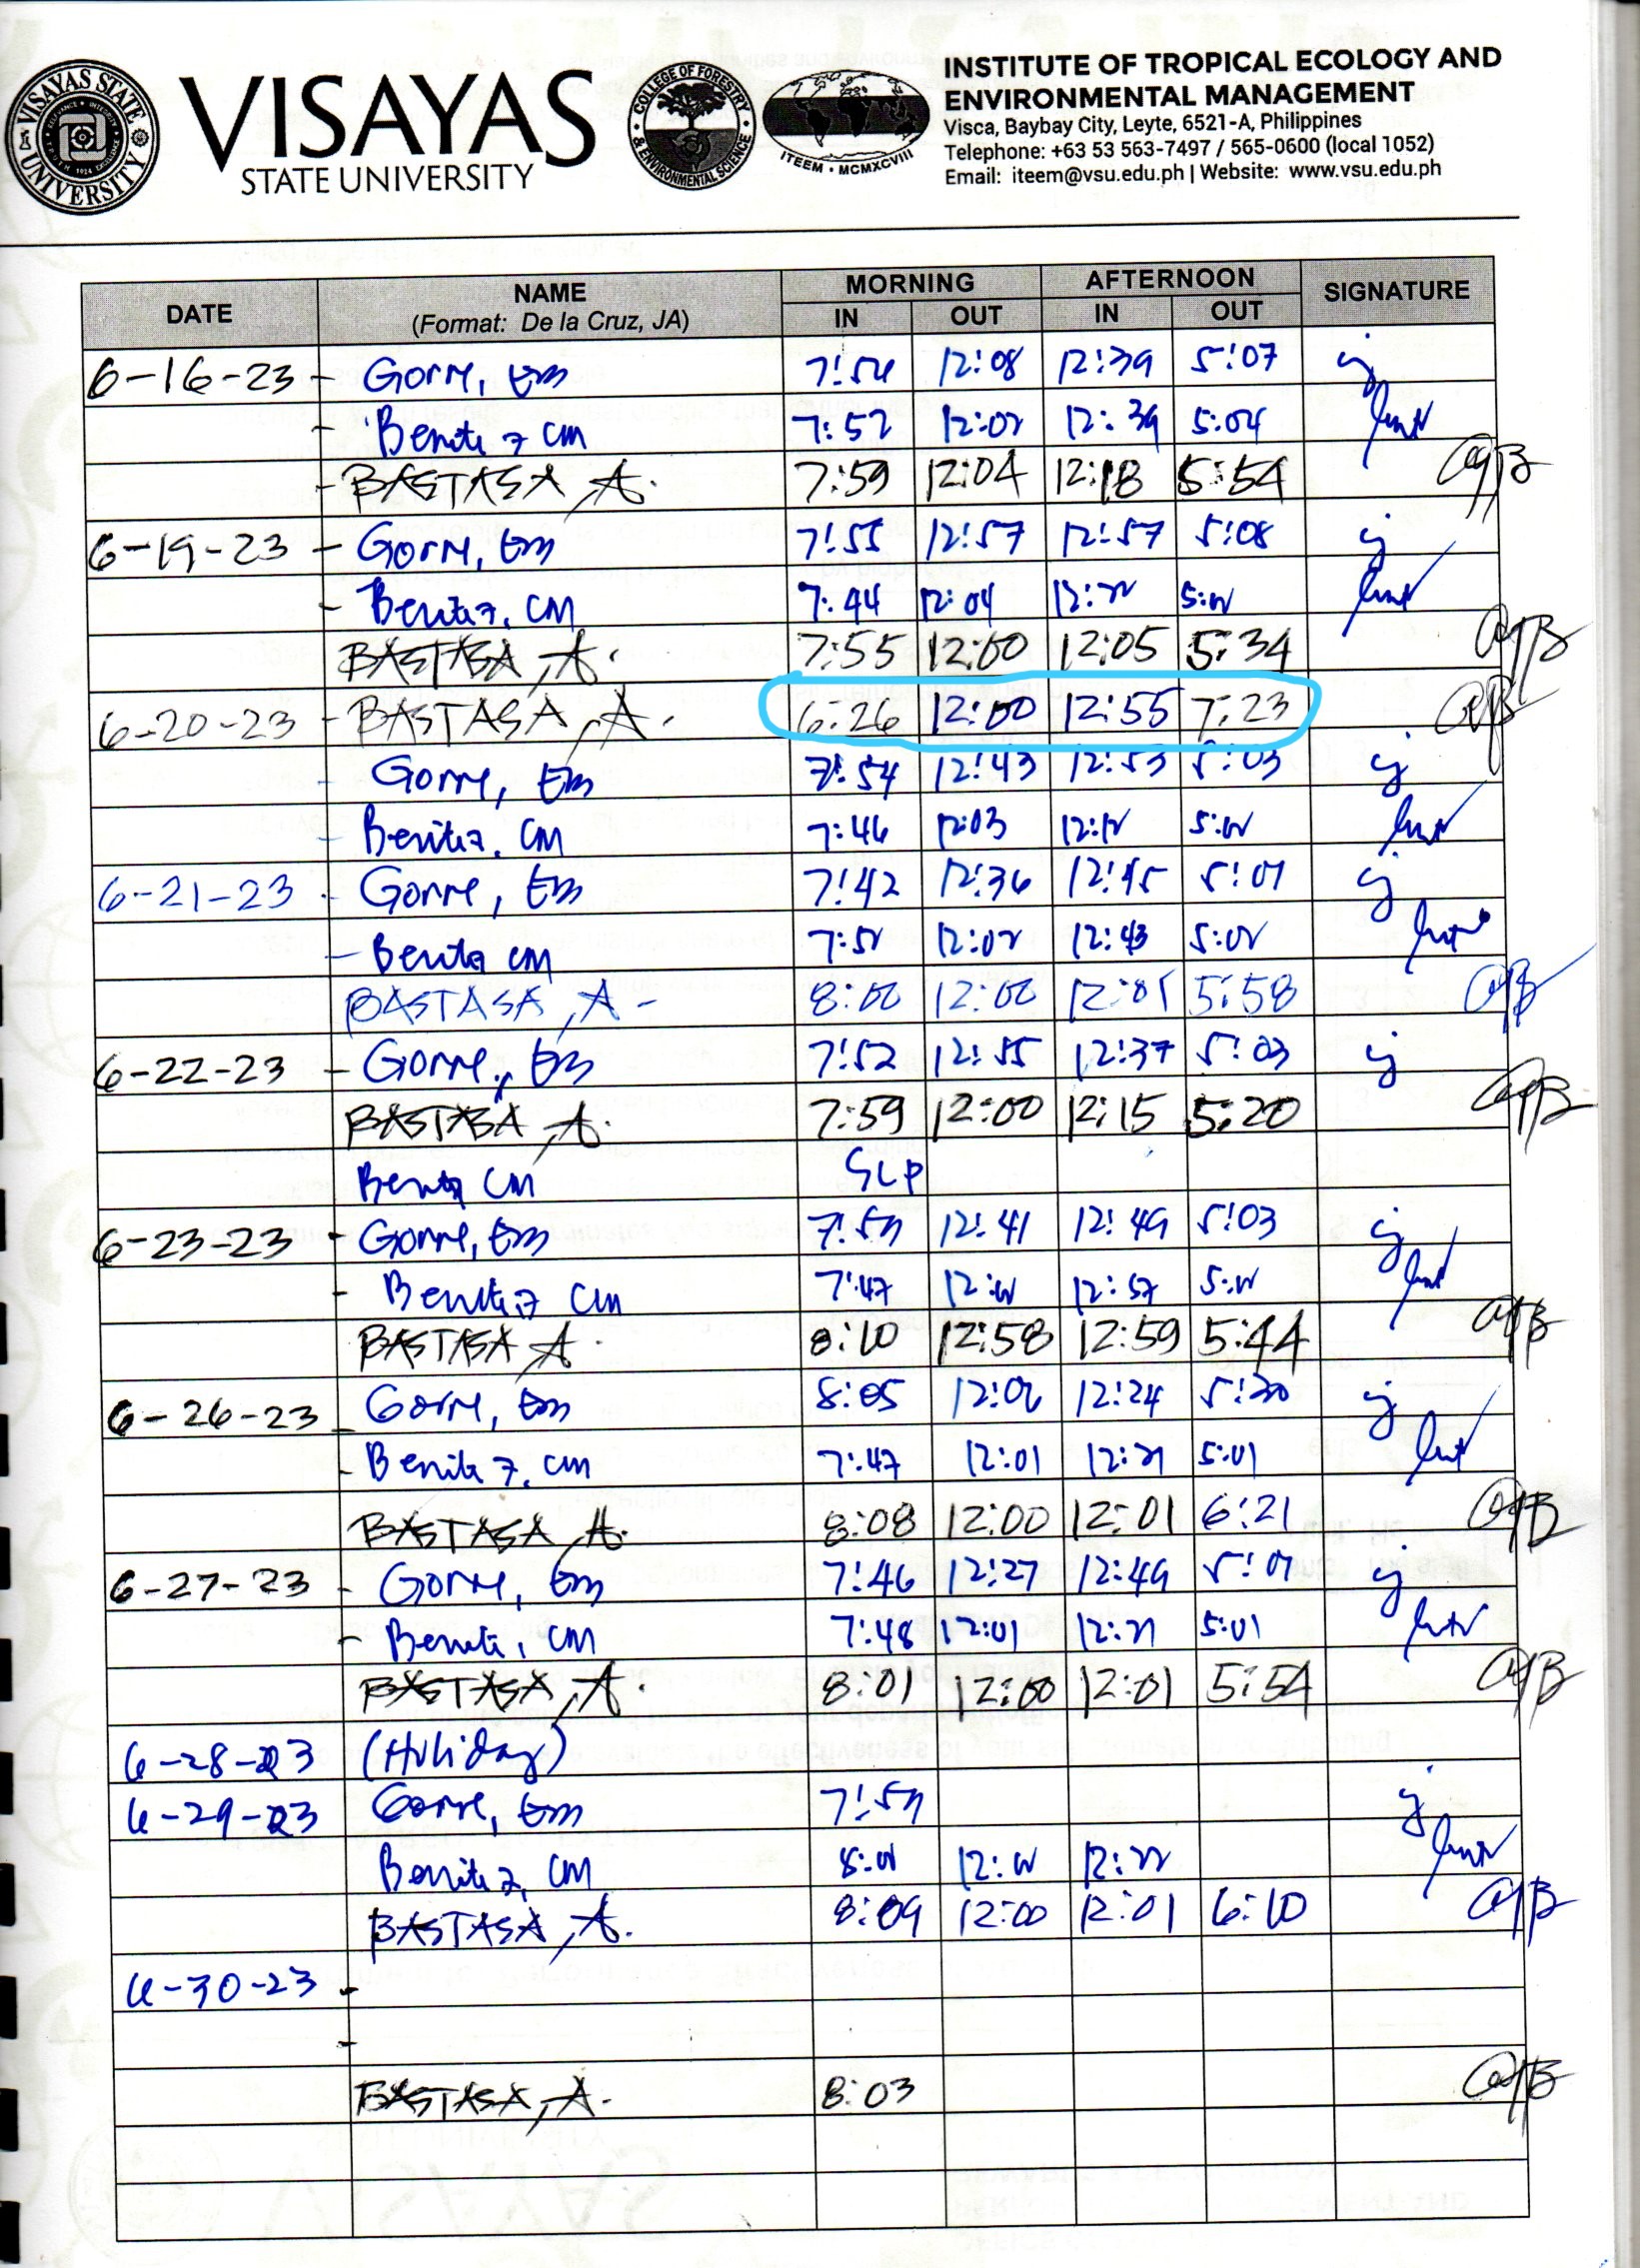 VISAYAS STATE UNIVERSITY
VISAYAS
STATE UNIVERSITY
COLLEGE OF FORESTRY & ENVIRONMENTAL SCIENCE
ITEEM • MCMXCVIII
INSTITUTE OF TROPICAL ECOLOGY AND
ENVIRONMENTAL MANAGEMENT
Visca, Baybay City, Leyte, 6521-A, Philippines
Telephone: +63 53 563-7497 / 565-0600 (local 1052)
Email: iteem@vsu.edu.ph | Website: www.vsu.edu.ph
DATE NAME MORNING AFTERNOON SIGNATURE
(Format: De la Cruz, JA) IN OUT IN OUT
6-16-23 - Gorre, EM 7:54 12:08 12:39 5:07
- Benitez CM 7:52 12:02 12:39 5:04
- BASTASA, A. 7:59 12:04 12:18 5:54
6-19-23 - Gorre, EM 7:55 12:57 12:57 5:08
- Benitez, CM 7:44 12:04
BASTASA, A. 7:55 12:00 12:05 5:34
6-20-23 - BASTASA, A. 6:26 12:00 12:55 7:23
- Gorre, EM 7:54 12:43 12:53 5:03
Benitez, CM 7:46 12:03
6-21-23 - Gorre, EM 7:42 12:36 12:45 5:07
- Benitez CM 12:02 12:43 5:02
BASTASA, A - 8:00 12:00 12:01 5:58
6-22-23 - Gorre, EM 7:52 12:55 12:37 5:03
BASTASA, A. 7:59 12:00 12:15 5:20
Benitez CM SLP
6-23-23 - Gorre, EM 12:41 12:49 5:03
- Benitez CM 7:47 12:57
BASTASA, A. 8:10 12:58 12:59 5:44
6-26-23 - Gorre, EM 8:05 12:06 12:24 5:30
- Benitez, CM 7:47 12:01 12:21 5:01
BASTASA, A. 8:08 12:00 12:01 6:21
6-27-23 - Gorre, EM 7:46 12:27 12:49 5:07
- Benitez, CM 7:48 12:01 12:21 5:01
BASTASA, A. 8:01 12:00 12:01 5:54
6-28-23 (Holiday)
6-29-23 Gorre, EM
Benitez, CM
BASTASA, A. 8:09 12:00 12:01 6:10
6-30-23 -
-
BASTASA, A. 8:03